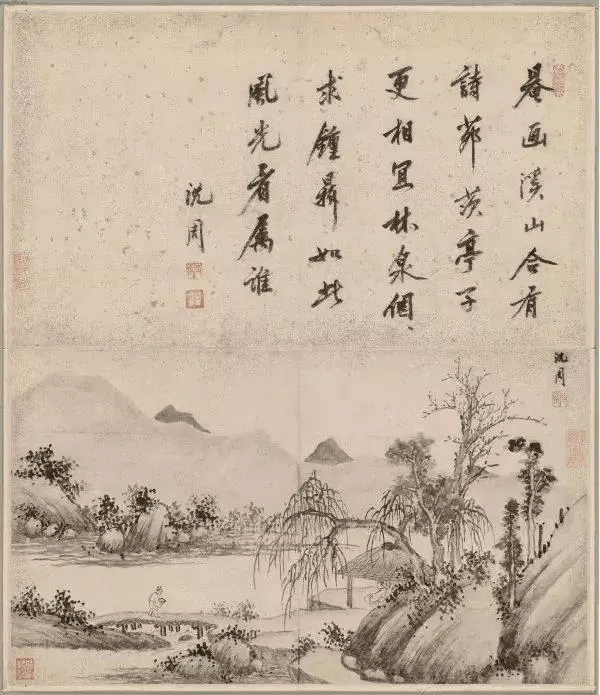 罨画溪山合有
詩茆茨亭子
更相冝林泉個〻
求鐘鼎如此
風光看屬誰
沈周
沈周